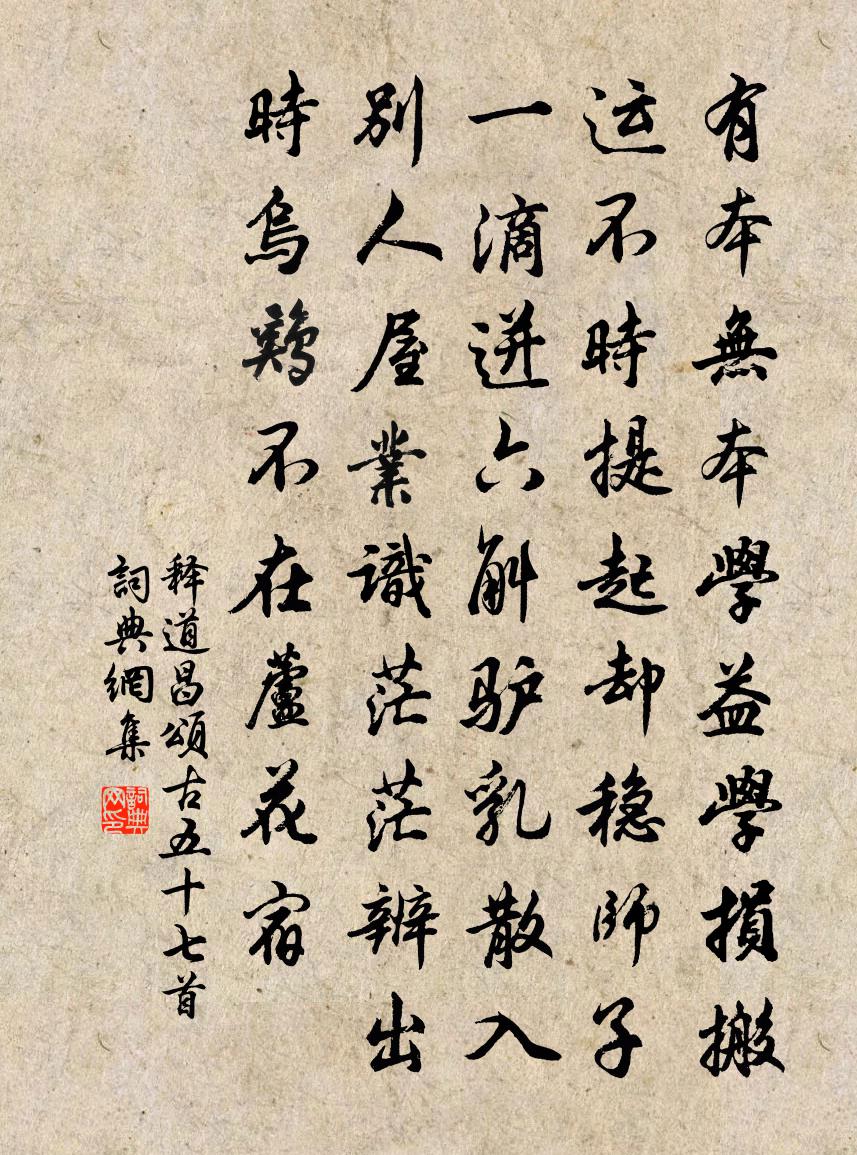 有本無本學益學損搬
运不時提起却穏師子
一滴迸六斛驴乳散入
別人屋業識茫茫辨出
時烏鷄不在蘆花宿
释道昌頌古五十七首
詞典網集
詞典网印